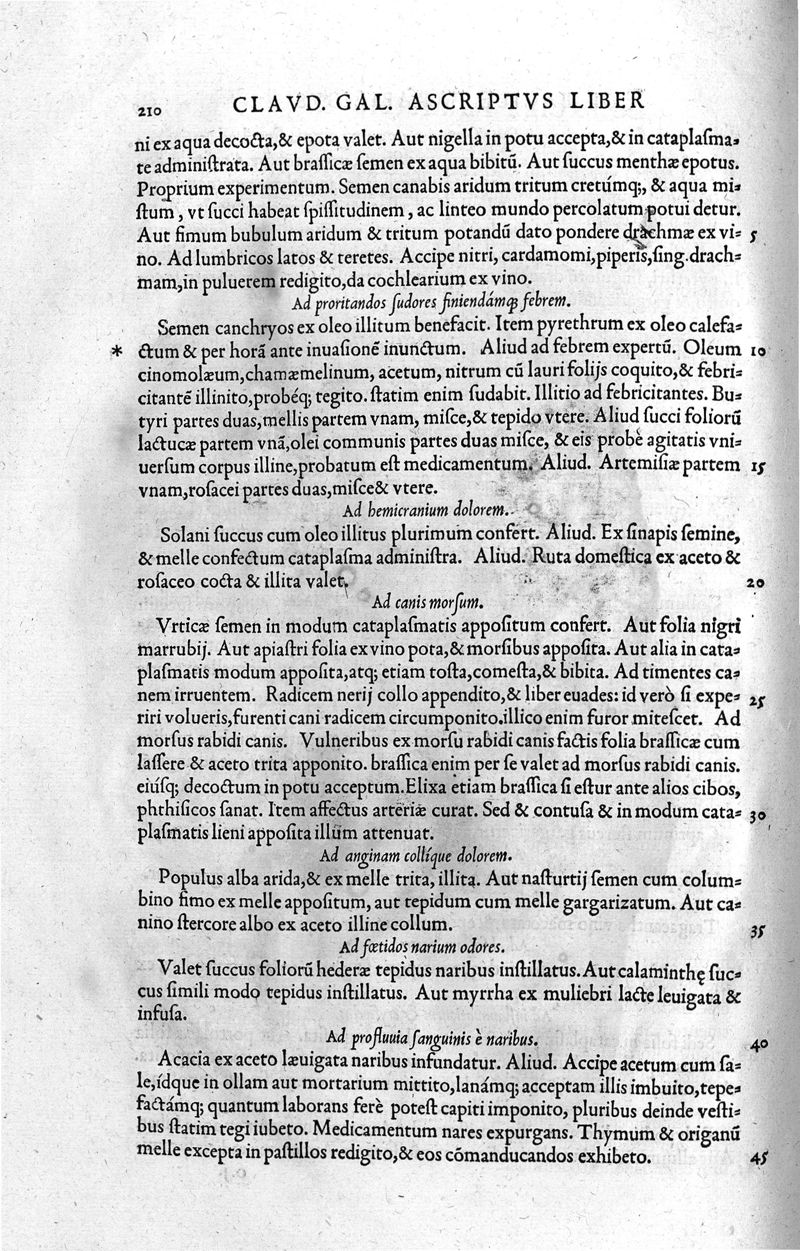 210 CLAVD. GAL. ASCRIPTVS LIBER
ni ex aqua decocta,& epota valet. Aut nigella in potu accepta,& in cataplaſma-
te adminiſtrata. Aut braſſicæ ſemen ex aqua bibitū. Aut ſuccus menthæ epotus.
Proprium experimentum. Semen canabis aridum tritum cretúmq;, & aqua mi-
ſtum, vt ſucci habeat ſpiſſitudinem, ac linteo mundo percolatum potui detur.
Aut fimum bubulum aridum & tritum potandū dato pondere drachmæ ex vi- 5
no. Ad lumbricos latos & teretes. Accipe nitri, cardamomi,piperis,ſing.drach-
mam,in puluerem redigito,da cochlearium ex vino.
Ad proritandos ſudores finiendámq; febrem.
Semen canchryos ex oleo illitum benefacit. Item pyrethrum ex oleo calefa-
* ctum & per horā ante inuaſionē inunctum. Aliud ad febrem expertū. Oleum 10
cinomolæum,chamæmelinum, acetum, nitrum cū lauri folijs coquito,& febri-
citantē illinito,probéq; tegito. ſtatim enim ſudabit. Illitio ad febricitantes. Bu-
tyri partes duas,mellis partem vnam, miſce,& tepido vtere. Aliud ſucci foliorū
lactucæ partem vnā,olei communis partes duas miſce, & eis probè agitatis vni-
uerſum corpus illine,probatum eſt medicamentum. Aliud. Artemiſiæ partem 15
vnam,roſacei partes duas,miſce& vtere.
Ad hemicranium dolorem.
Solani ſuccus cum oleo illitus plurimum confert. Aliud. Ex ſinapis ſemine,
& melle confectum cataplaſma adminiſtra. Aliud. Ruta domeſtica ex aceto &
roſaceo cocta & illita valet. 20
Ad canis morſum.
Vrticæ ſemen in modum cataplaſmatis appoſitum confert. Aut folia nigri
marrubij. Aut apiaſtri folia ex vino pota,& morſibus appoſita. Aut alia in cata-
plaſmatis modum appoſita,atq; etiam toſta,comeſta,& bibita. Ad timentes ca-
nem irruentem. Radicem nerij collo appendito,& liber euades: id verò ſi expe- 25
riri volueris,furenti cani radicem circumponito.illico enim furor miteſcet. Ad
morſus rabidi canis. Vulneribus ex morſu rabidi canis factis folia braſſicæ cum
laſſere & aceto trita apponito. braſſica enim per ſe valet ad morſus rabidi canis.
eiúſq; decoctum in potu acceptum.Elixa etiam braſſica ſi eſtur ante alios cibos,
phthiſicos ſanat. Item affectus arteriæ curat. Sed & contuſa & in modum cata- 30
plaſmatis lieni appoſita illum attenuat.
Ad anginam collíque dolorem.
Populus alba arida,& ex melle trita, illita. Aut naſturtij ſemen cum colum-
bino fimo ex melle appoſitum, aut tepidum cum melle gargarizatum. Aut ca-
nino ſtercore albo ex aceto illine collum. 35
Ad fœtidos narium odores.
Valet ſuccus foliorū hederæ tepidus naribus inſtillatus. Aut calaminthę ſuc-
cus ſimili modo tepidus inſtillatus. Aut myrrha ex muliebri lacte leuigata &
infuſa.
Ad profluuia ſanguinis è naribus. 40
Acacia ex aceto læuigata naribus infundatur. Aliud. Accipe acetum cum ſa-
le,ídque in ollam aut mortarium mittito,lanámq; acceptam illis imbuito,tepe-
factámq; quantum laborans ferè poteſt capiti imponito, pluribus deinde veſti-
bus ſtatim tegi iubeto. Medicamentum nares expurgans. Thymum & origanū
melle excepta in paſtillos redigito,& eos cōmanducandos exhibeto. 45